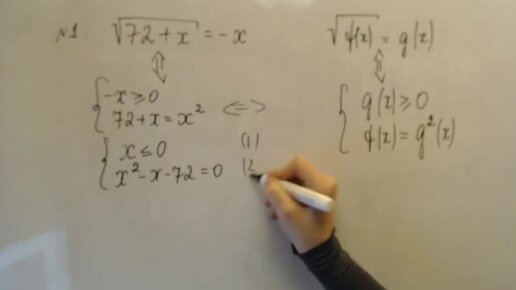 №1. √(72 + x) = -x
⇕
{ -x ≥ 0
72 + x = x² <=>
{ x ≤ 0 (1)
x² - x - 72 = 0 (2
√φ(x) = g(x)
⇕
{ g(x) ≥ 0
φ(x) = g²(x)